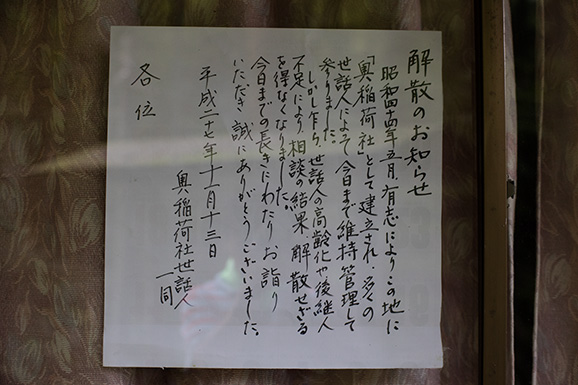 解散のお知らせ
昭和四十四年五月、有志によりこの地に
「奥稲荷社」として建立され、多くの
世話人によって今日まで維持管理して
参りました。
しかし乍ら、世話人の高齢化や後継人
不足により、相談の結果、解散せざる
を得なくなりました。
今日までの長きにわたり、お詣り
いただき、誠にありがとうございました。
平成二十七年十一月十三日
奥稲荷社世話人
一同
各位